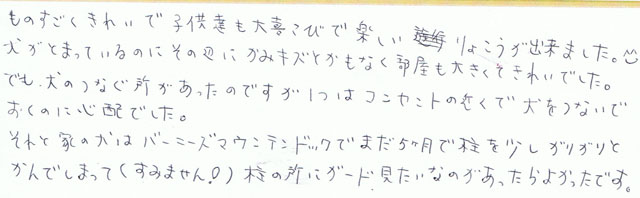 ものすごくきれいで子供達も大喜こびで楽しいりょこうが出来ました。
犬がとまっているのにその辺にかみキズとかもなく部屋も大きくてきれいでした。
でも、犬のつなぐ所があったのですが1つはコンセントの近くで犬をつないで
おくのに心配でした。
それと家の犬はバーニーズマウンテンドックでまだ5ヶ月で柱を少しがりがりと
かんでしまって(すみません!)柱の所にガード見たいなのがあったらよかったです。